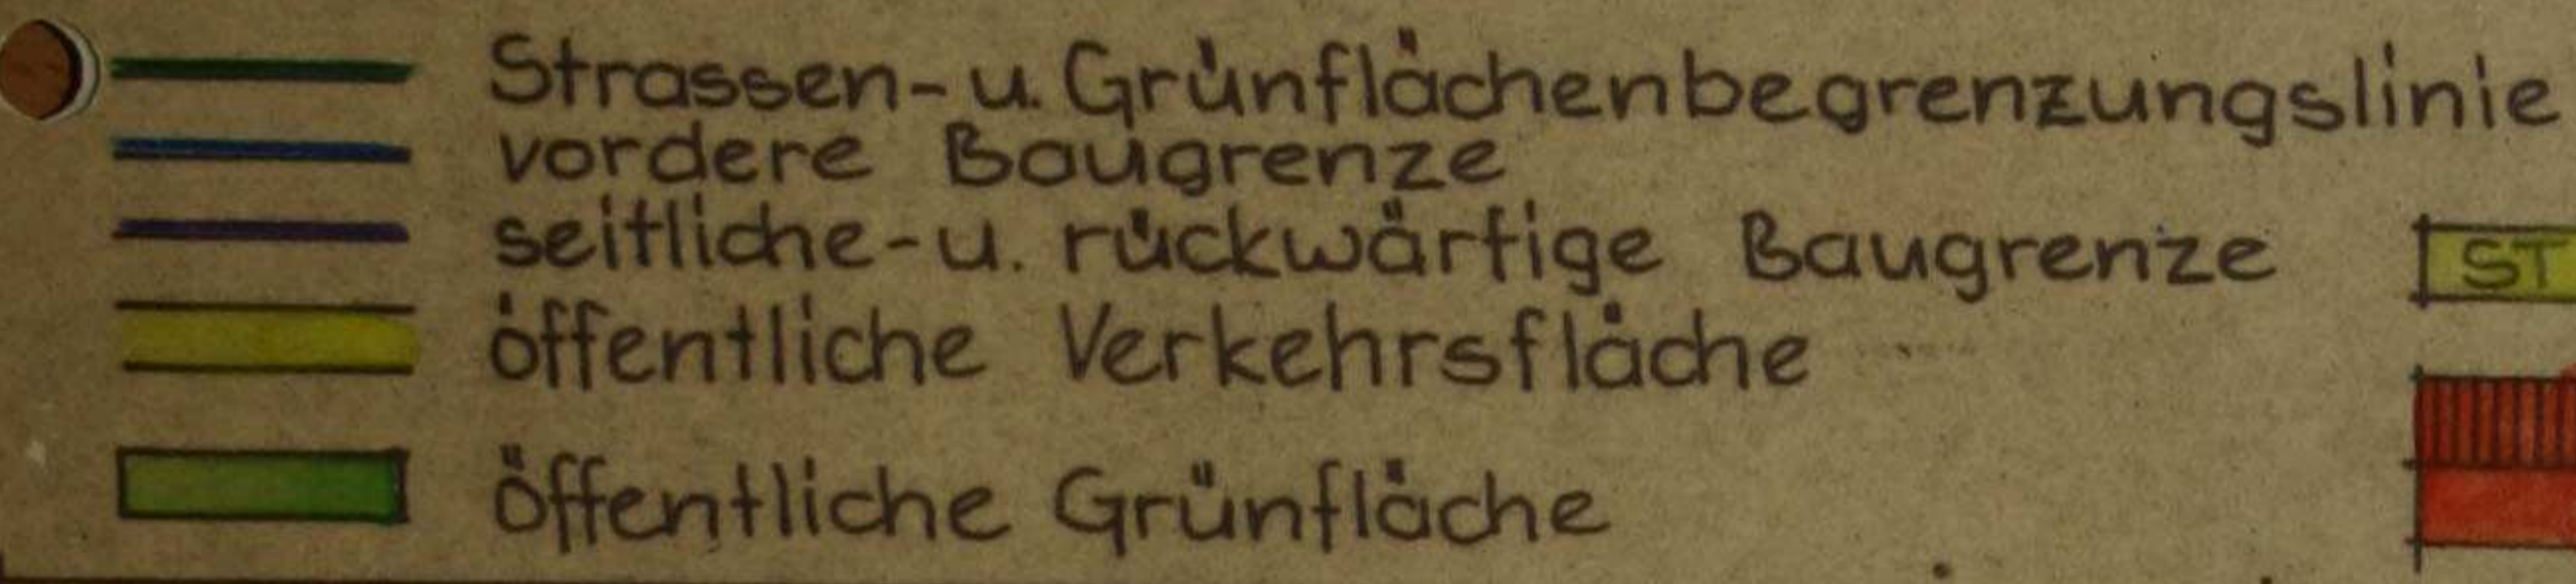 Strassen-u. Grünflächenbegrenzungslinie
vordere Baugrenze
seitliche-u. rückwärtige Baugrenze
ST
öffentliche Verkehrsfläche
öffentliche Grünfläche